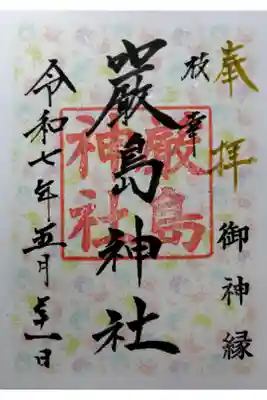 奉拝
枝幸
御神縁
厳島神社
厳島
神社
令和七年五月一日